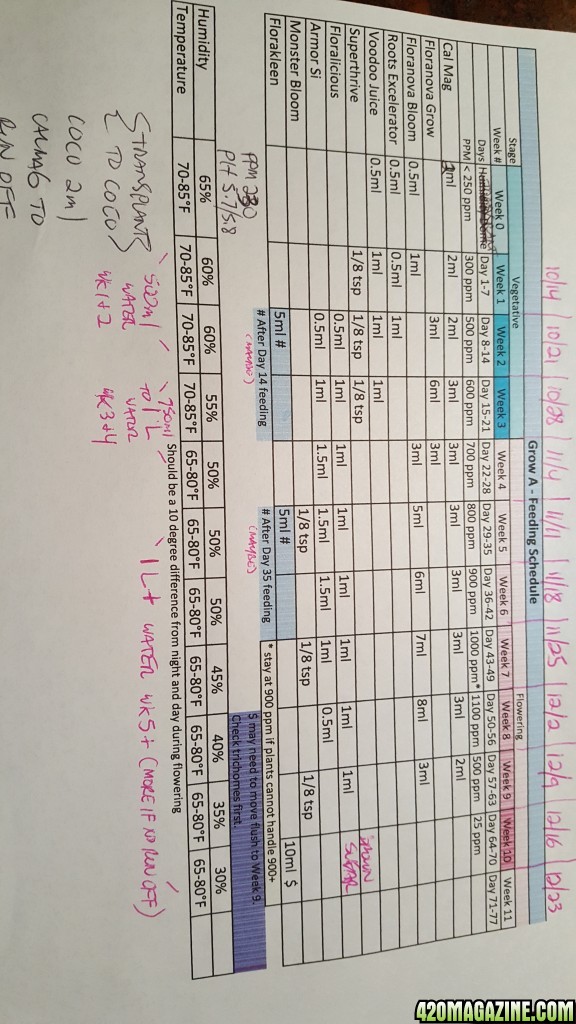 10/14 / 10/21 / 10/28 / 11/4 / 11/11 / 11/18 / 11/25 / 12/2 / 12/9 / 12/16 / 12/23
Grow A - Feeding Schedule
Stage Vegetative Flowering
Week # Week 0 Week 1 Week 2 Week 3 Week 4 Week 5 Week 6 Week 7 Week 8 Week 9 Week 10 Week 11
Days Day 1-7 Day 8-14 Day 15-21 Day 22-28 Day 29-35 Day 36-42 Day 43-49 Day 50-56 Day 57-63 Day 64-70 Day 71-77
PPM < 250 ppm 300 ppm 500 ppm 600 ppm 700 ppm 800 ppm 900 ppm 1000 ppm* 1100 ppm 500 ppm 25 ppm
Cal Mag 2ml 2ml 2ml 3ml 3ml 3ml 3ml 3ml 3ml 2ml
Floranova Grow 3ml 6ml 3ml
Floranova Bloom 0.5ml 1ml 3ml 5ml 6ml 7ml 8ml 3ml
Roots Excelerator 0.5ml 1ml
Voodoo Juice 0.5ml 1ml 1ml 1ml
Superthrive 1/8 tsp 1/8 tsp 1/8 tsp BROWN SUGAR
Floralicious 0.5ml 1ml 1ml 1ml 1ml 1ml 1ml 1ml
Armor Si 0.5ml 1ml 1.5ml 1.5ml 1.5ml 1ml 0.5ml
Monster Bloom 1/8 tsp 1/8 tsp 1/8 tsp
Florakleen 5ml # 5ml # 10ml $
# After Day 14 feeding # After Day 35 feeding * stay at 900 ppm if plants cannot handle 900+
(MAYBE) (MAYBE)
PPM 230
PH 5.7/5.8
$ may need to move flush to Week 9.
Check trichomes first.
Humidity 65% 60% 60% 55% 50% 50% 50% 45% 40% 35% 30%
Temperature 70-85°F 70-85°F 70-85°F 70-85°F 65-80°F 65-80°F 65-80°F 65-80°F 65-80°F 65-80°F 65-80°F
Should be a 10 degree difference from night and day during flowering
{TRANSPLANTS
TO COCO}
COCO 2ml
CALMAG TO
RUN OFF
500ml
WATER
WK 1+2
750ml
TO 1L
WATER
WK 3+4
1L+ WATER WK5+ (MORE IF NO RUN OFF)
420MAGAZINE.COM